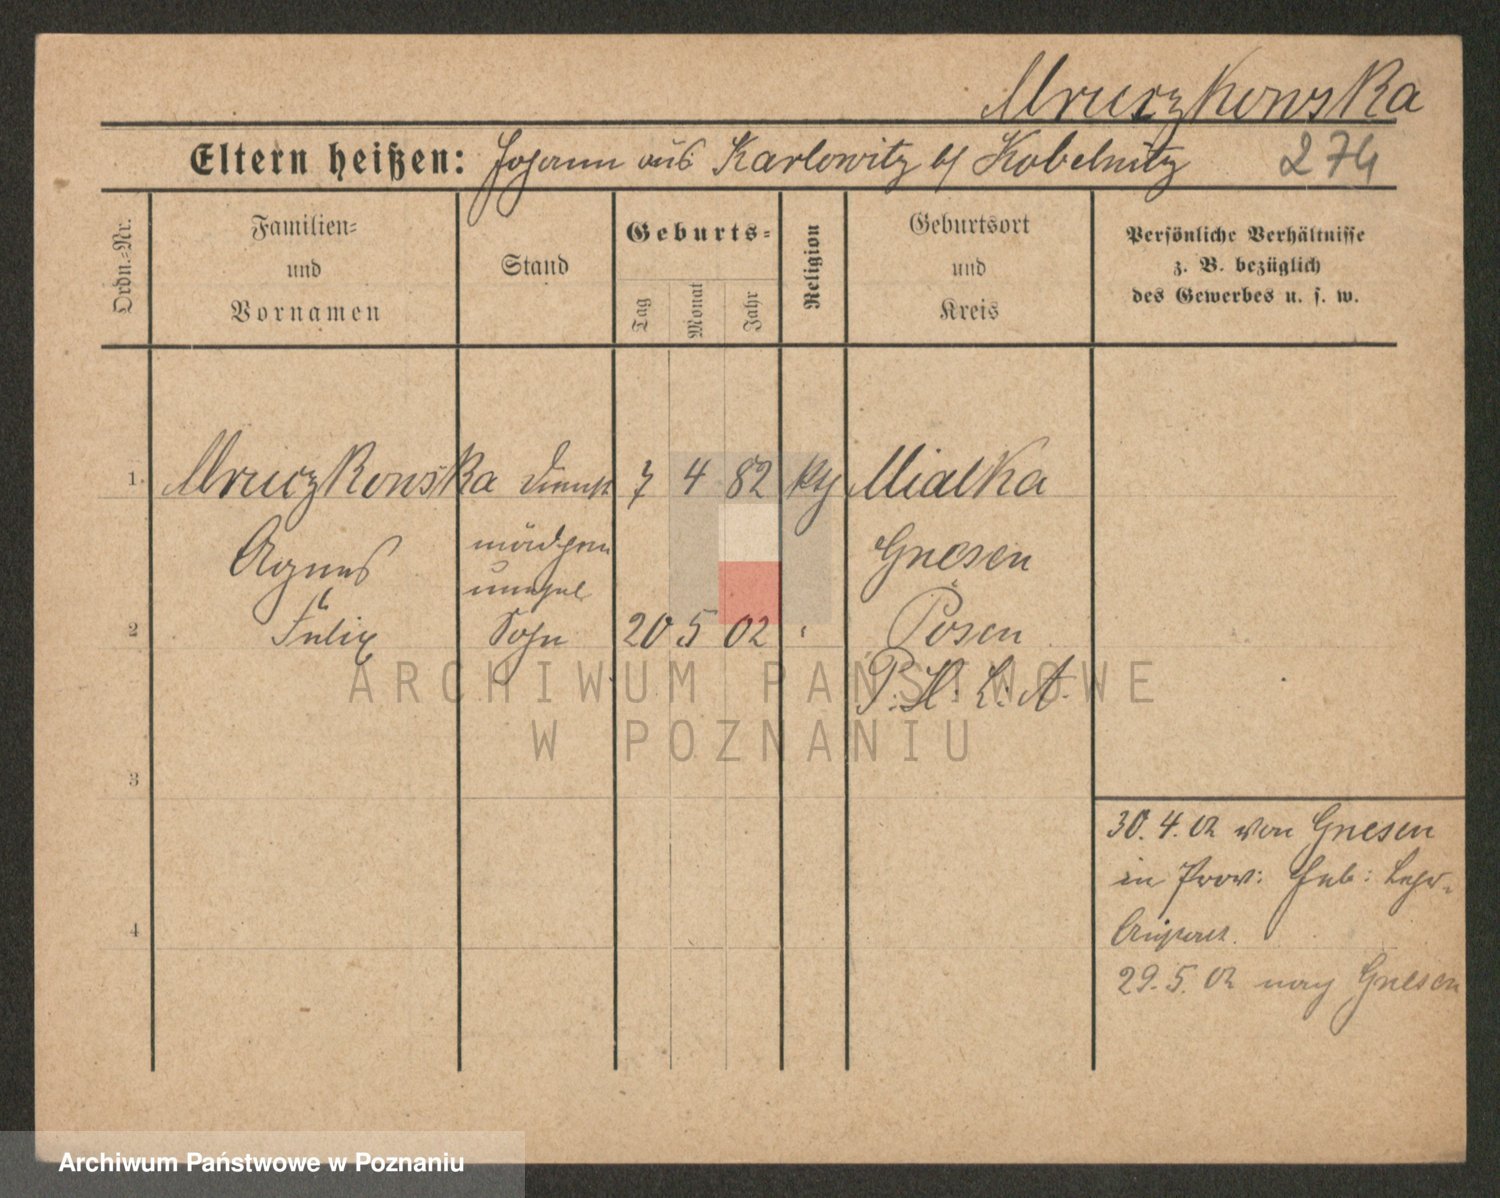 Mruczkowska
Eltern heißen: Johann aus Karlowitz b/ Kobelnitz 274
Ordn.-Nr.
Familien-
und
Vornamen
Stand
Geburts-
Tag
Monat
Jahr
Religion
Geburtsort
und
Kreis
Persönliche Verhältnisse
z. B. bezüglich
des Gewerbes u. s. w.
1. Mruczkowska Dienst 7 4 82 kth Mialka
Agnes mädchen Gnesen
unehel
2 Felix Sohn 20 5 02 Posen
P. H. L. A.
3
4
30. 4. 02 von Gnesen
in Prov: Heb: Lehr-
Anstalt.
29. 5. 02 nach Gnesen
ARCHIWUM PAŃSTWOWE
W POZNANIU
Archiwum Państwowe w Poznaniu